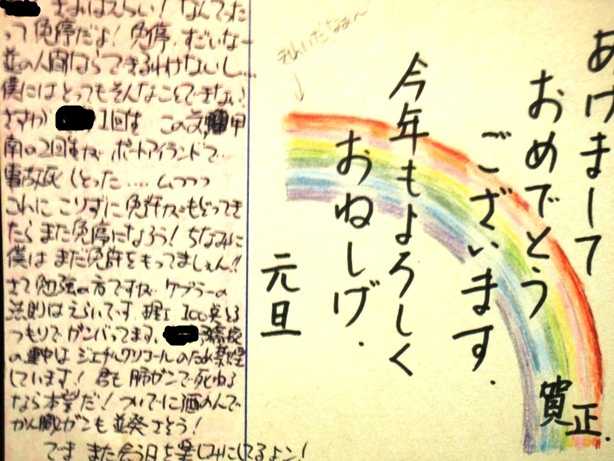 あけまして
おめでとう
ございます.
今年もよろしく
おねしげ.
元旦
賀正.
きれいだなあ〜
えらい!なんてったって
って免停だよ!免停.すごいなー
並の人間ならできるわけないし…
僕にはとってもそんなことできない!
さすが 1回生 この 甲
南の2回生が ポートアイランドで
事故死しとった..... ムフフフ
これに こりずに 免許が もどってき
たら また 免停になろう!ちなみに
僕は まだ 免許を もってましぇん!!
さて 勉強の方ですが、ケプラーの
法則は えらいです. 100
つもりで ガンバってます.
の連中は ジエチレングリコールの
しています!君も 肺ガンで 死ねる
なら 本望だ!ついでに 酒のんで
かん臓ガンも 併発さそう!
では また 会う日を 楽しみにしてるよン!